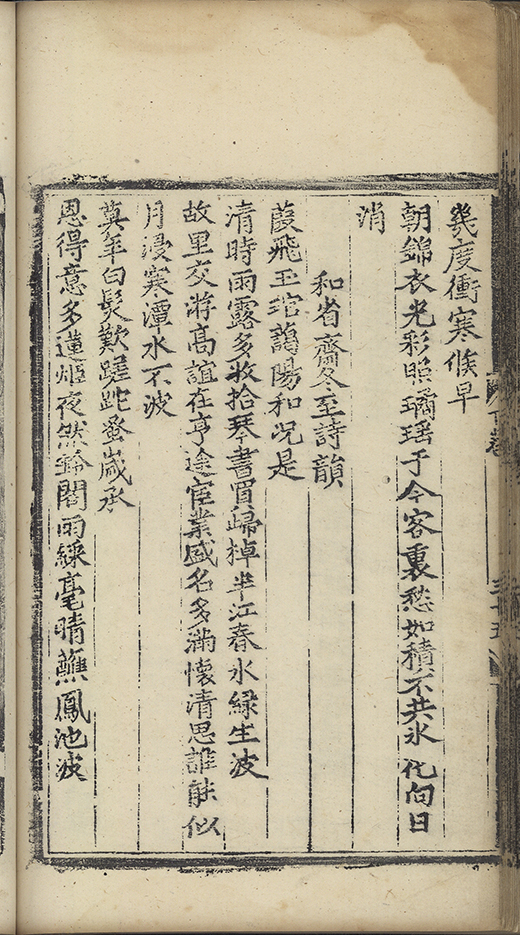 幾度衝寒候早
朝錦衣光彩照璚瑶于今客裏愁如積不共冰化向日
消
和省齋冬至詩韻
葭飛玉琯藹陽和况是
清時雨露多收拾琴書買歸棹半江春水緑生波
故里交游高誼在亨途宦業盛名多滿懷清思誰能似
月浸寒潭水不波
莫年白髮歎蹉跎蚤歲承
恩得意多蓮炬夜然鈴閣雨綵毫晴蘸鳳池波
下卷